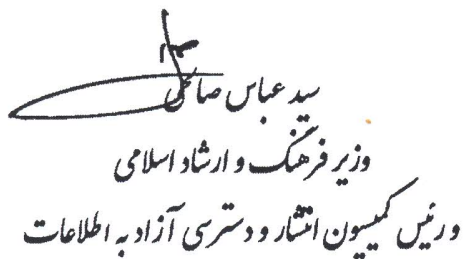 سید عباس صالحی
وزیر فرهنگ و ارشاد اسلامی
و رئیس کمیسیون انتشار و دسترسی آزاد به اطلاعات